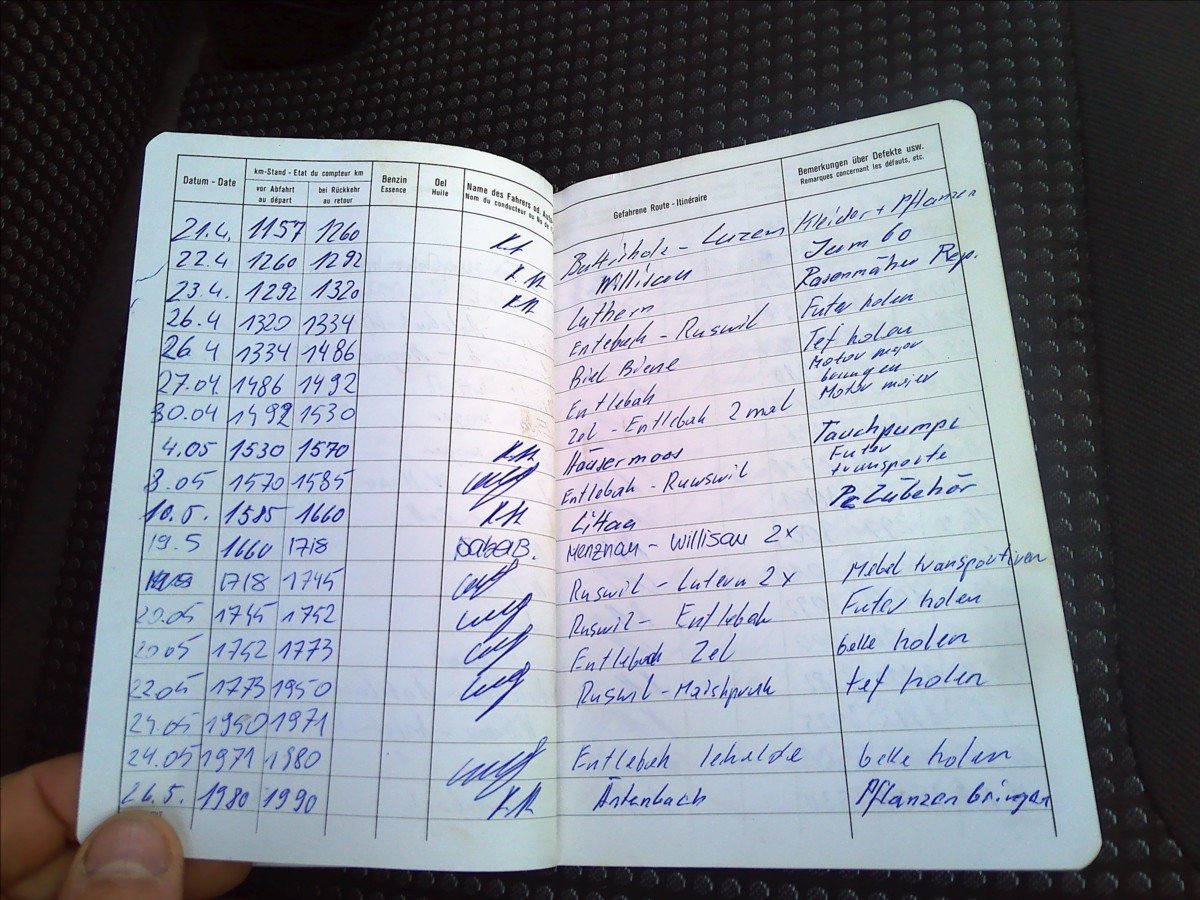 Datum - Date km-Stand - Etat du compteur km Benzin Essence Oel Huile Name des Fahrers od. Nom du conducteur ou No Gefahrene Route - Itinéraire Bemerkungen über Defekte usw. Remarques concernant les défauts, etc.
vor Abfahrt au départ bei Rückkehr au retour
21.4. 1157 1260 - Luzern Kleider + Pflanzen
22.4 1260 1292 K.M. Willisau Jum bo
23.4. 1292 1320 K.M. Luthern Rasenmäher Rep.
26.4 1320 1334 Entebuch - Ruswil Futer holen
26.4 1334 1486 Biel Biene Tef holen
27.04. 1486 1492 Entlebah Motor majer bringen
30.04 1492 1530 Zel - Entlebah 2 mal Motor majer
4.05 1530 1570 K.M. Häusermoos Tauchpumpe
8.05 1570 1585 Entlebah - Ruwswil Futer transporte
10.5. 1585 1660 K.M. Littau Pc Zubehör
19.5 1660 1718 Menznau - Willisau 2x
1718 1745 Ruswil - Lutern 2x Mebel transportiren
20.05 1745 1752 Ruswil - Entlebah Futer holen
20.05 1752 1773 Entlebuch Zel belle holen
22.05 1773 1950 Ruswil - tef holen
24.05 1950 1971
24.05 1971 1980 Entlebah belle holen
26.5. 1980 1990 K.M. Äntenbach Pflanzen bringen